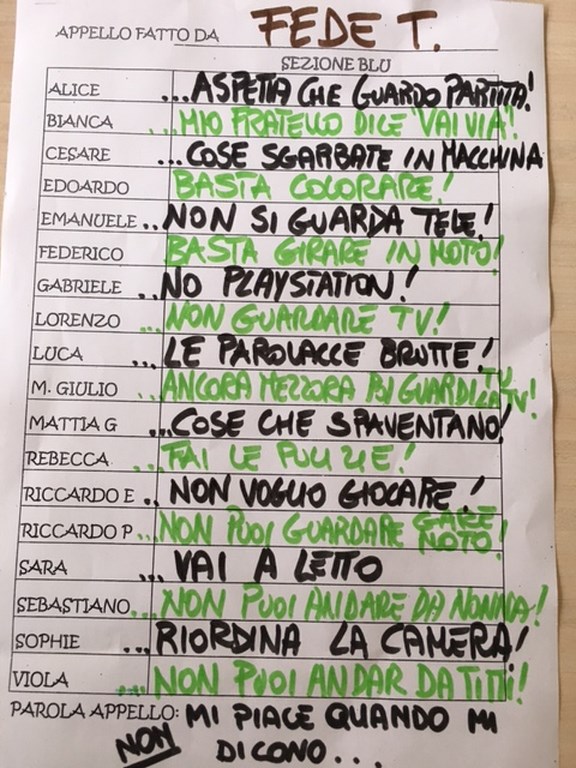 APPELLO FATTO DA FEDE T.
SEZIONE BLU
ALICE ...ASPETTA CHE GUARDO PARTITA!
BIANCA ...MIO FRATELLO DICE VAI VIA!
CESARE ...COSE SGARBATE IN MACCHINA
EDOARDO BASTA COLORARE!
EMANUELE ..NON SI GUARDA TELE!
FEDERICO BASTA GIRARE IN MOTO!
GABRIELE ..NO PLAYSTATION!
LORENZO ...NON GUARDARE TV!
LUCA ...LE PAROLACCE BRUTTE!
M. GIULIO ...ANCORA MEZZORA POI GUARDI LA TV!
MATTIA G ...COSE CHE SPAVENTANO!
REBECCA ...FAI LE PULIZIE!
RICCARDO E .. NON VOGLIO GIOCARE!
RICCARDO P ...NON PUOI GUARDARE GARE MOTO!
SARA ...VAI A LETTO
SEBASTIANO ...NON PUOI ANDARE DA NONNA!
SOPHIE ...RIORDINA LA CAMERA!
VIOLA ...NON PUOI ANDAR DA TITTI!
PAROLA APPELLO: MI PIACE QUANDO MI
NON DICONO...